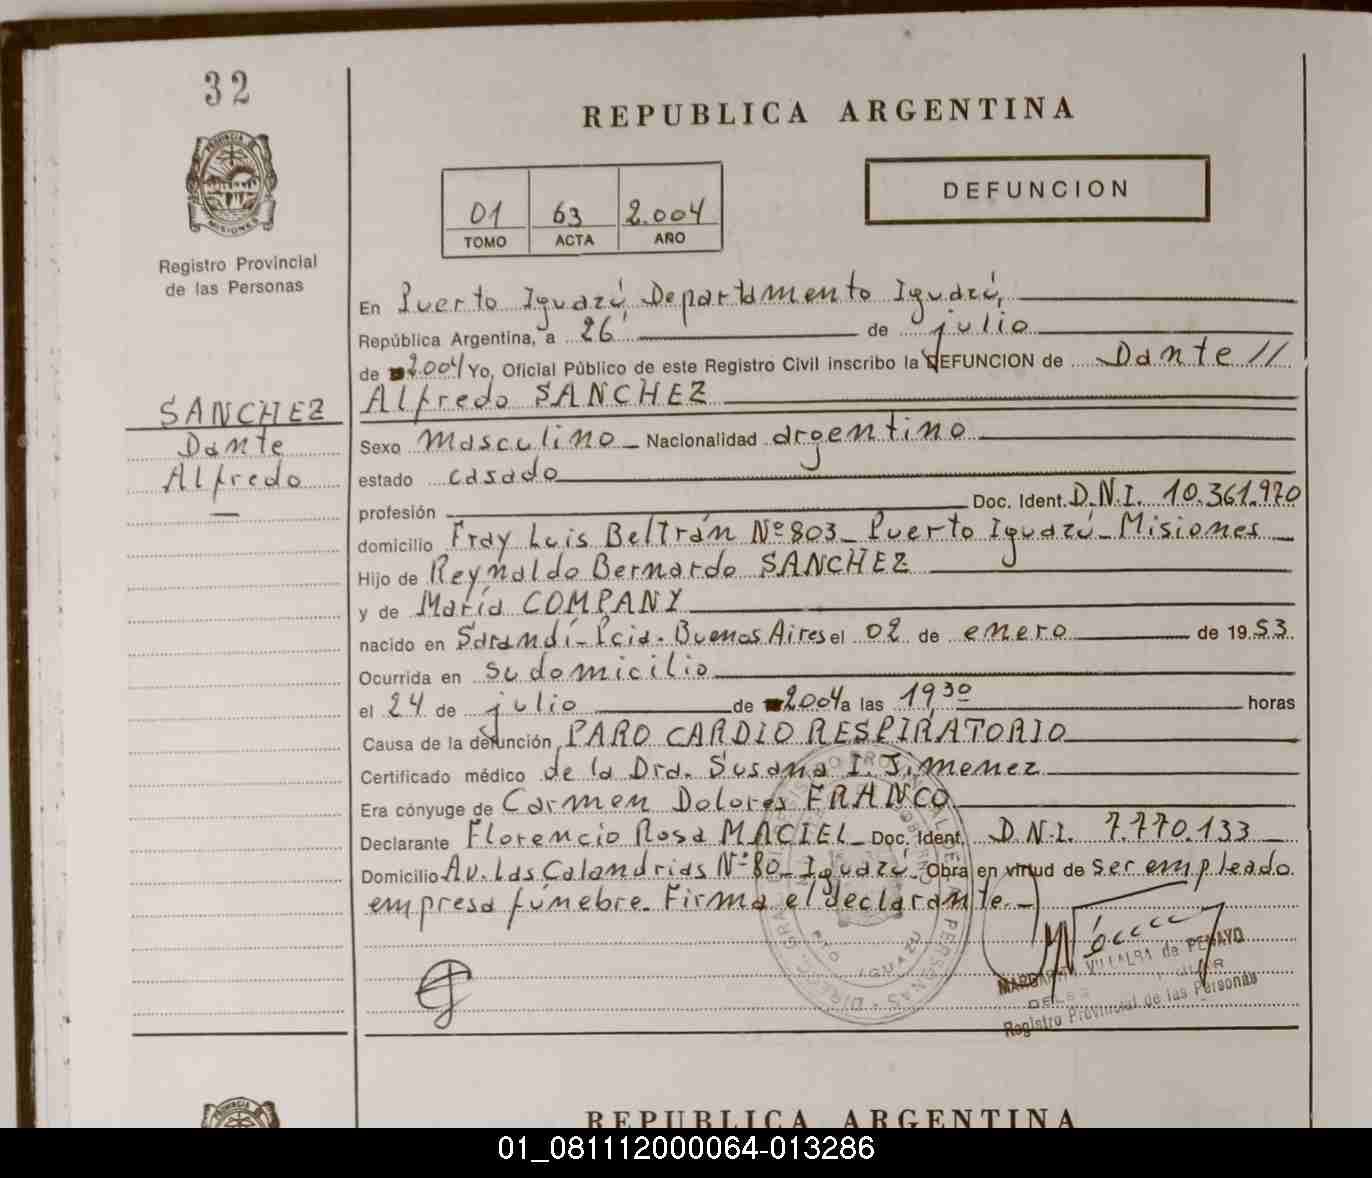 32
PROVINCIA DE
MISIONES
Registro Provincial
de las Personas
SANCHEZ
Dante
Alfredo
—
REPUBLICA ARGENTINA
01 63 2.004
TOMO ACTA AÑO
DEFUNCION
En Puerto Iguazú, Departamento Iguazú,
República Argentina, a 26 de julio
de 2.004 Yo, Oficial Público de este Registro Civil inscribo la DEFUNCION de Dante //
Alfredo SANCHEZ
Sexo masculino Nacionalidad argentino
estado casado
profesión Doc. Ident. D.N.I. 10.361.970
domicilio Fray Luis Beltrán Nº 803_ Puerto Iguazú_ Misiones
Hijo de Reynaldo Bernardo SANCHEZ
y de María COMPANY
nacido en Sarandí_ Pcia. Buenos Aires el 02 de enero de 19 53
Ocurrida en su domicilio
el 24 de julio de 2004 a las 19,30 horas
Causa de la defunción PARO CARDIO RESPIRATORIO
Certificado médico de la Dra. Susana I. Jimenez
Era cónyuge de Carmen Dolores FRANCO
Declarante Florencio Rosa MACIEL_ Doc. Ident. D.N.I. 7.770.133
Domicilio Av. Las Calandrias Nº 80_ Iguazú_ Obra en virtud de ser empleado
empresa fúnebre. Firma el declarante._
PTO IGUAZU
PERSONAS
MARGARITA VILLALBA de PENAYO
Registro Provincial de las Personas
REPUBLICA ARGENTINA
01_081112000064-013286